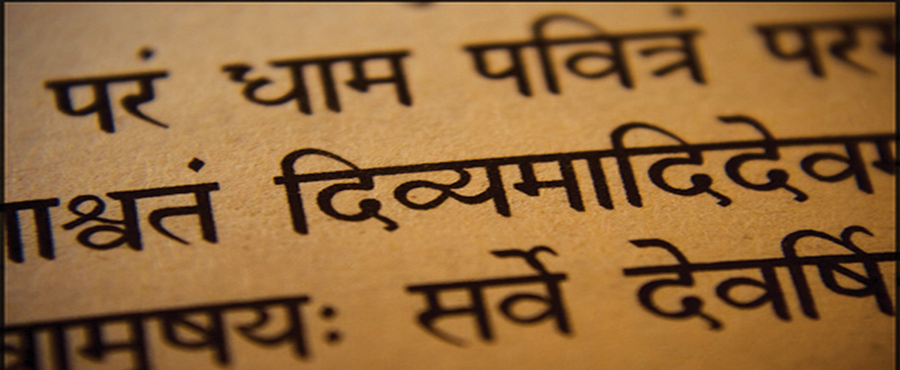 परं धाम पवित्रं पर
ाश्वतं दिव्यमादिदेवम
ामृषयः सर्वे देवर्षि